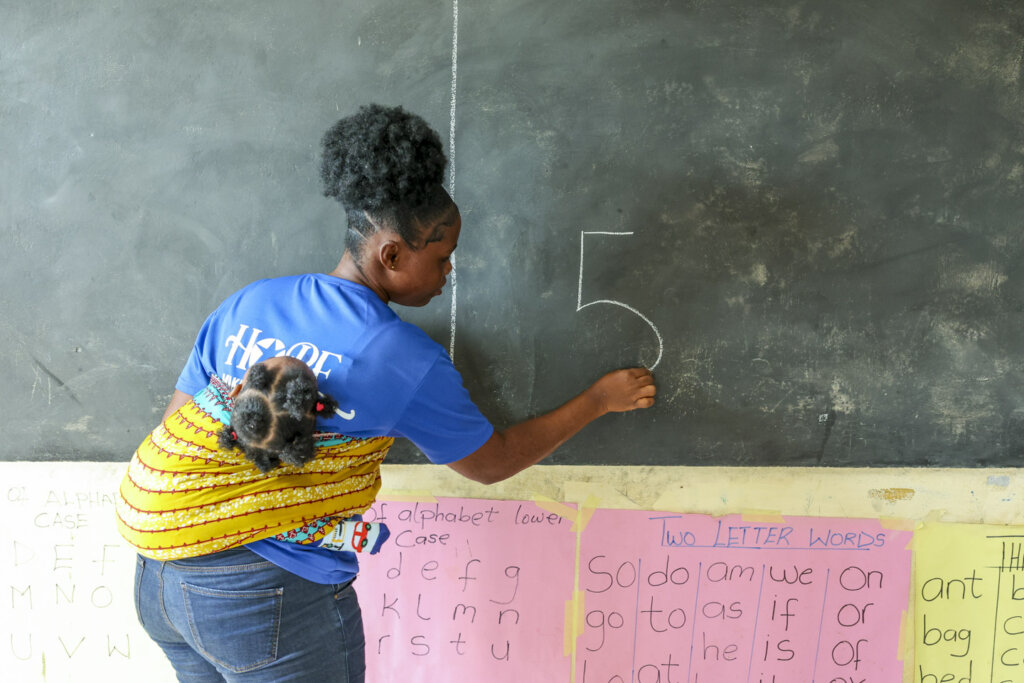 5
HOPE
OF ALPHA
CASE
D E F
M N O
U V W
of alphabet lower
Case
d e f g
k l m n
r s t u
TWO LETTER WORDS
So do am we on
go to as if or
he is of
at
ant
bag
bed